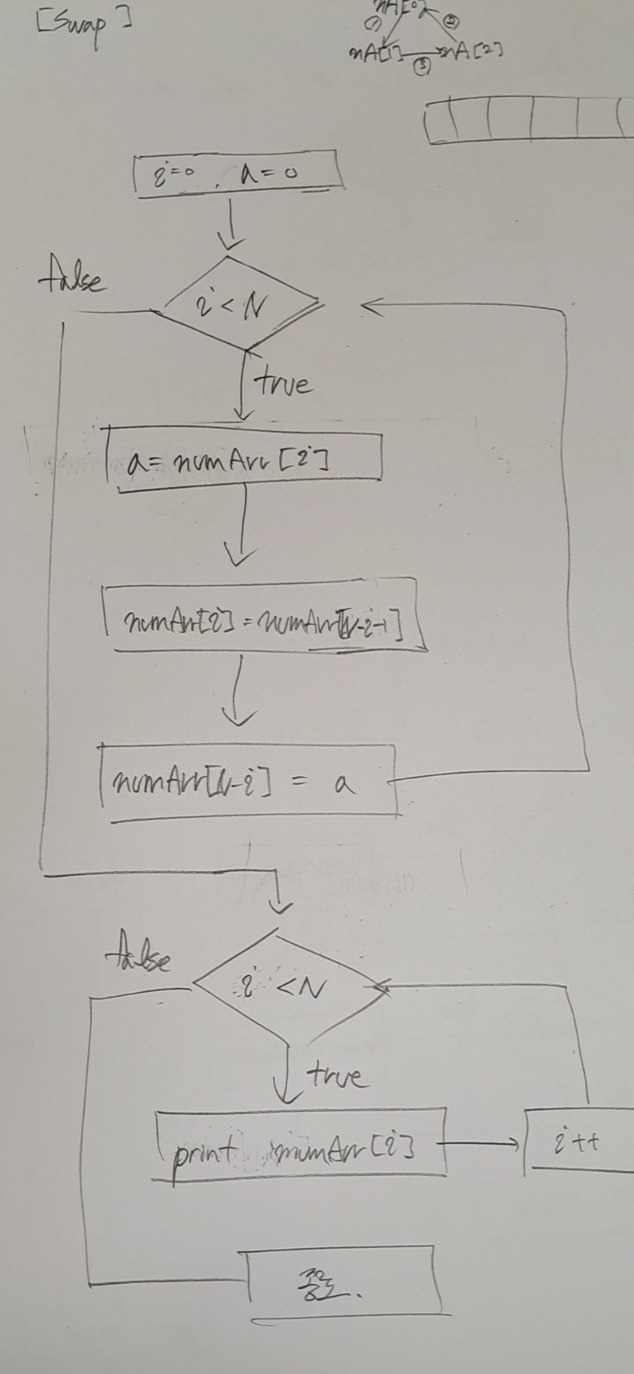 [Swap]
nA[0]
① ②
nA[1] nA[2]
③
i=0, a=0
false
i<N
true
a=numArr[i]
numArr[i]=numArr[N-i-1]
numArr[N-i] = a
false
i <N
true
print numArr[i]
i++
종료.